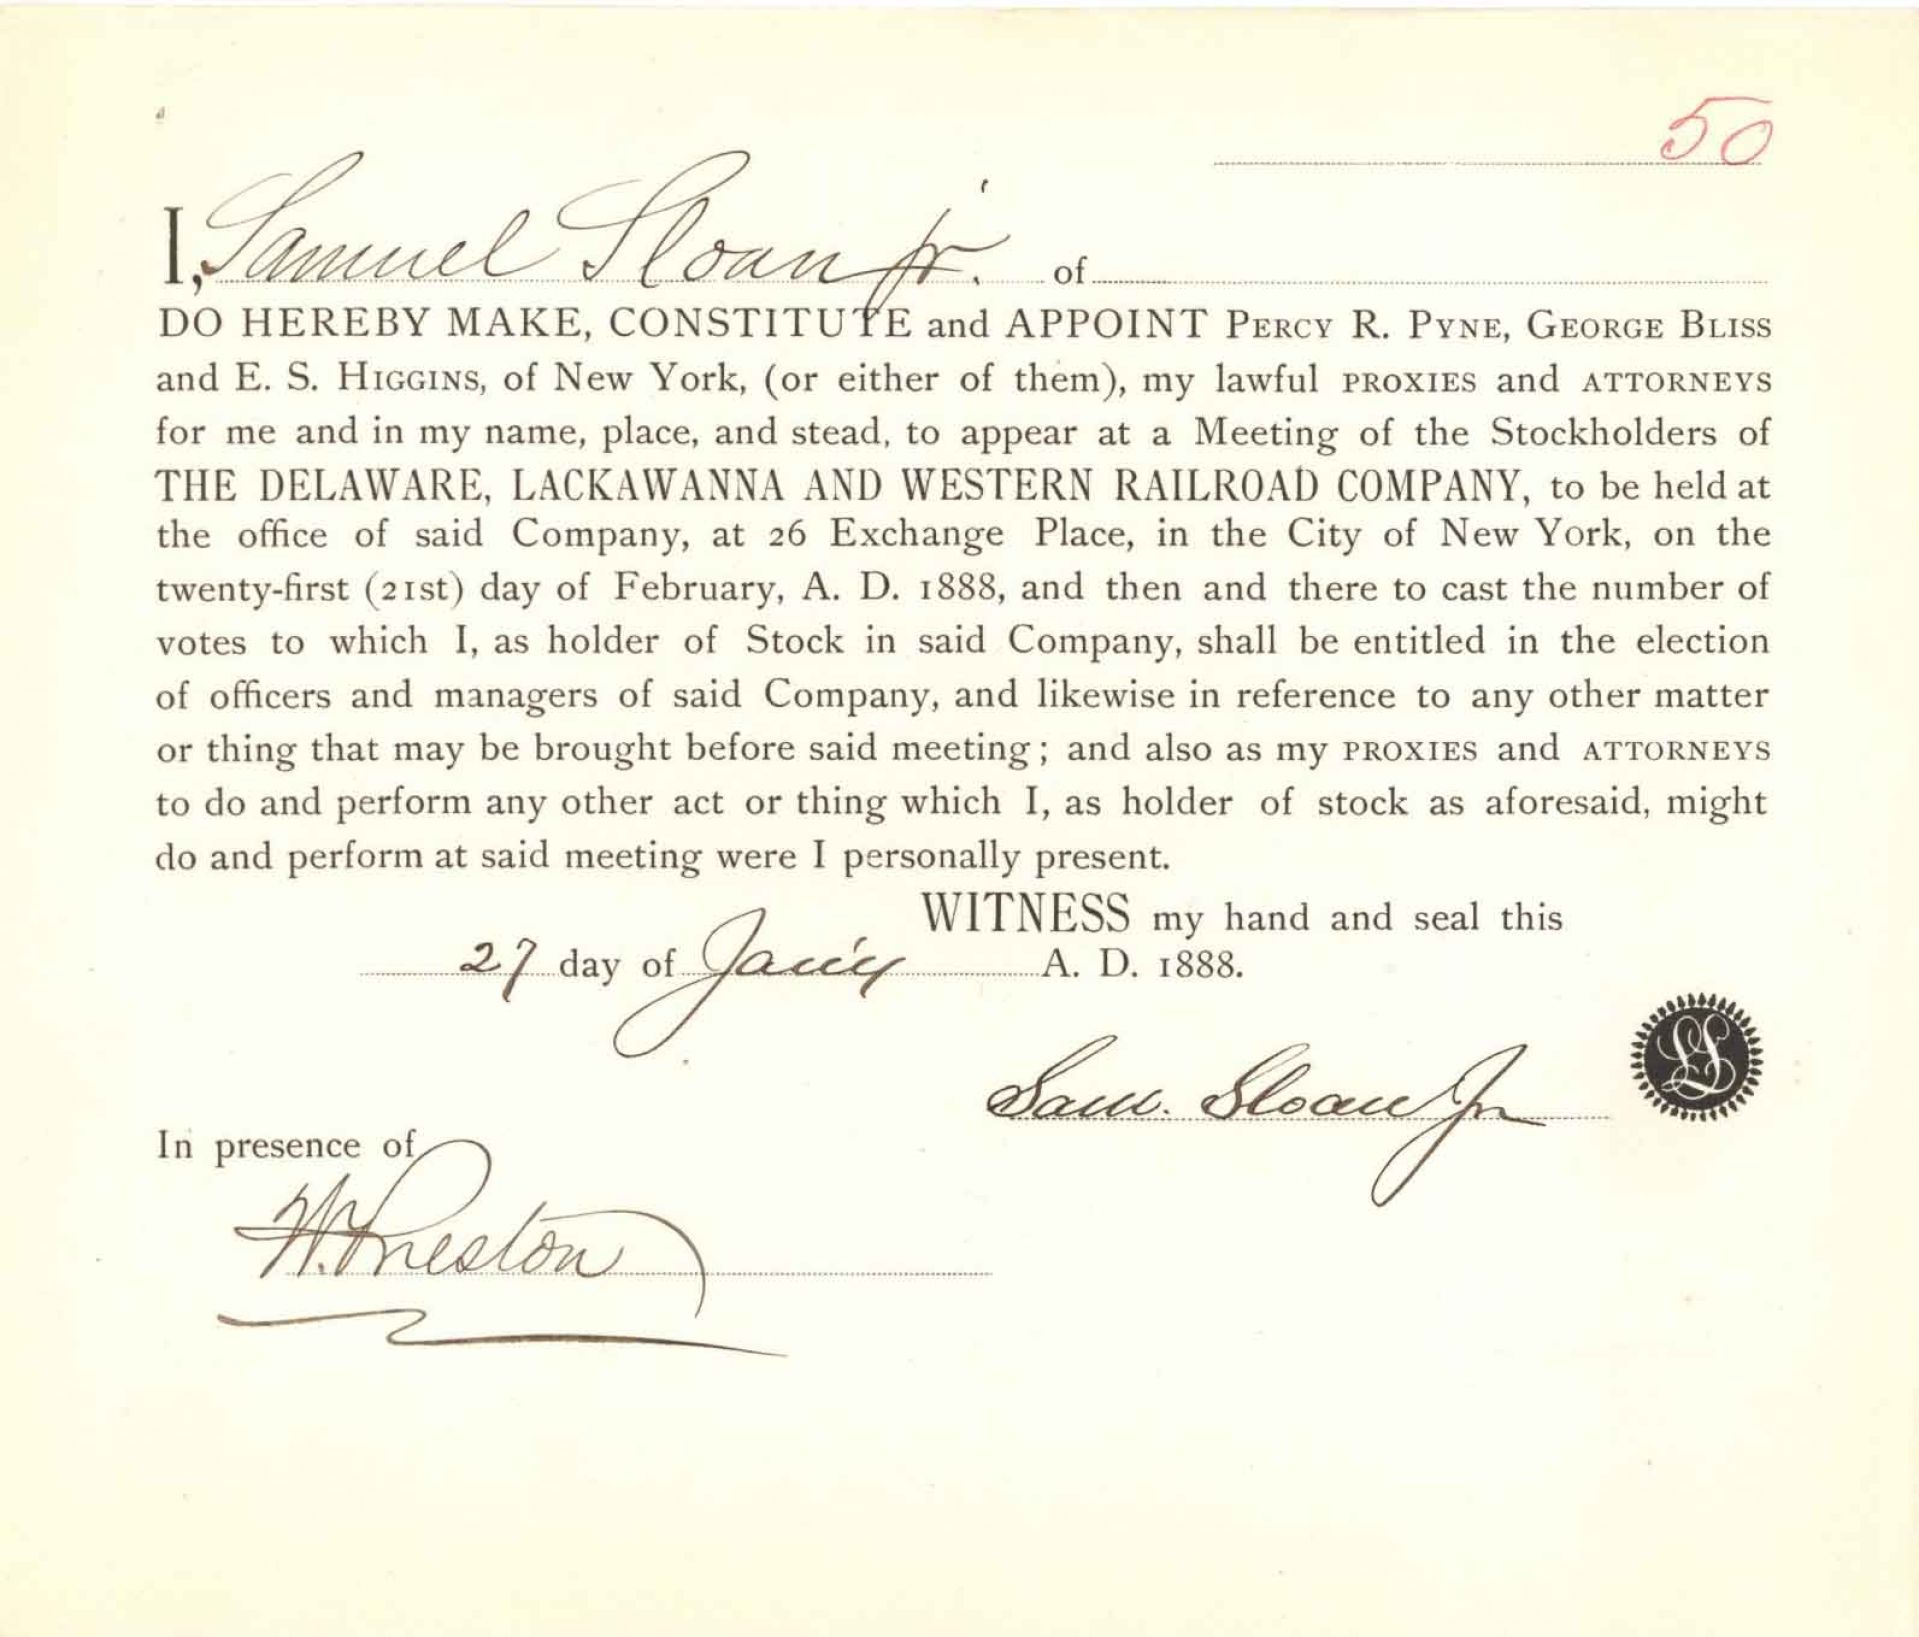 50
I, Samuel Sloan Jr. of
DO HEREBY MAKE, CONSTITUTE and APPOINT PERCY R. PYNE, GEORGE BLISS
and E. S. HIGGINS, of New York, (or either of them), my lawful PROXIES and ATTORNEYS
for me and in my name, place, and stead, to appear at a Meeting of the Stockholders of
THE DELAWARE, LACKAWANNA AND WESTERN RAILROAD COMPANY, to be held at
the office of said Company, at 26 Exchange Place, in the City of New York, on the
twenty-first (21st) day of February, A. D. 1888, and then and there to cast the number of
votes to which I, as holder of Stock in said Company, shall be entitled in the election
of officers and managers of said Company, and likewise in reference to any other matter
or thing that may be brought before said meeting; and also as my PROXIES and ATTORNEYS
to do and perform any other act or thing which I, as holder of stock as aforesaid, might
do and perform at said meeting were I personally present.
WITNESS my hand and seal this
27 day of Jan'y A. D. 1888.
Sam. Sloan Jr
LS
In presence of
W. Preston